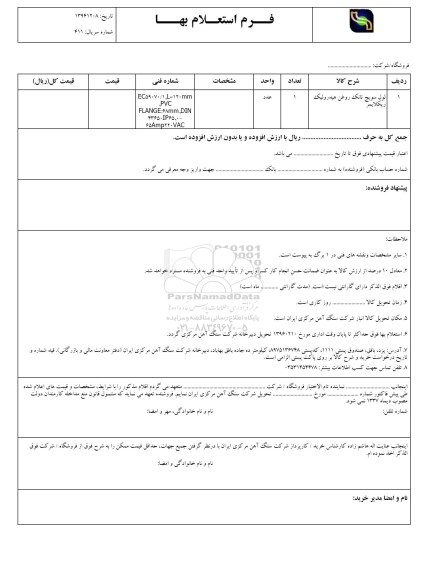 فـــرم استعـــلام بهـــا
تاریخ: ۱۳۹۶۱۲۰۸
شماره سریال: ۴۱۱
فروشگاه/شرکت: ..............................
ردیف شرح کالا تعداد واحد مشخصات شماره فنی قیمت قیمت کل(ریال)
۱ لول سوییچ تانک روغن هیدرولیک ریکلایمر ۱ عدد
EC59070/1,L=120mm
,PVC
FLANGE:48mm,DIN
جمع کل به حرف .............................. ریال با ارزش افزوده و یا بدون ارزش افزوده است.
اعتبار قیمت پیشنهادی فوق تا تاریخ .................... می باشد.
شماره حساب بانکی (فروشنده) به شماره .................... بانک .................... جهت واریز وجه معرفی می گردد.
پیشنهاد فروشنده:
ملاحظات:
۱. سایر مشخصات ونقشه های فنی در ۱ برگ به پیوست است.
۲. معادل ۱۰ درصد از ارزش کالا به عنوان ضمانت حسن انجام کار کسر و پس از تایید واحد فنی به فروشنده مسترد خواهد شد.
۳. اقلام فوق الذکر دارای گارانتی نیست است. (مدت گارانتی .......... ماه است)
۴. زمان تحویل کالا .................... روز کاری است.
۵. مکان تحویل کالا انبار شرکت سنگ آهن مرکزی ایران است.
۶. استعلام بها فوق حداکثر تا پایان وقت اداری مورخ ۱۳۹۶۰۲۱۰ تحویل دبیرخانه شرکت سنگ آهن مرکزی گردد.
۷. آدرس: یزد، بافق، صندوق پستی ۱۱۱۱، کدپستی ۸۹۷۵۱۳۶۷۴۸، کیلومتر ده جاده بافق بهاباد، دبیرخانه شرکت سنگ آهن مرکزی ایران (دفتر معاونت مالی و بازرگانی). قید شماره و تاریخ درخواست خرید و شرح کالا بر روی پاکت پستی الزامی است.
۸. تلفن تماس جهت کسب اطلاعات بیشتر:
ParsNamadData
۰۲۱-۸۸۳۴۹۶۷۰-۵
اینجانب .................... نماینده تام الاختیار فروشگاه / شرکت .................... متعهد می گردم اقلام مذکور را با شرایط، مشخصات و قیمت های اعلام شده
طی پیش فاکتور شماره .................... مورخ .................... تحویل شرکت سنگ آهن مرکزی ایران نمایم. فروشنده تعهد می نماید که مشمول قانون منع مداخله کارمندان دولت
مصوب دیماه ۱۳۳۷ نمی شود.
شماره تلفن: نام و نام خانوادگی، مهر و امضا:
اینجانب عنایت اله هاشم زاده کارشناس خرید / کارپرداز شرکت سنگ آهن مرکزی ایران با درنظر گرفتن جمیع جهات، حداقل قیمت ممکن را به شرح فوق از فروشگاه / شرکت فوق
الذکر اخذ نموده ام.
نام و نام خانوادگی و امضا:
نام و امضا مدیر خرید: